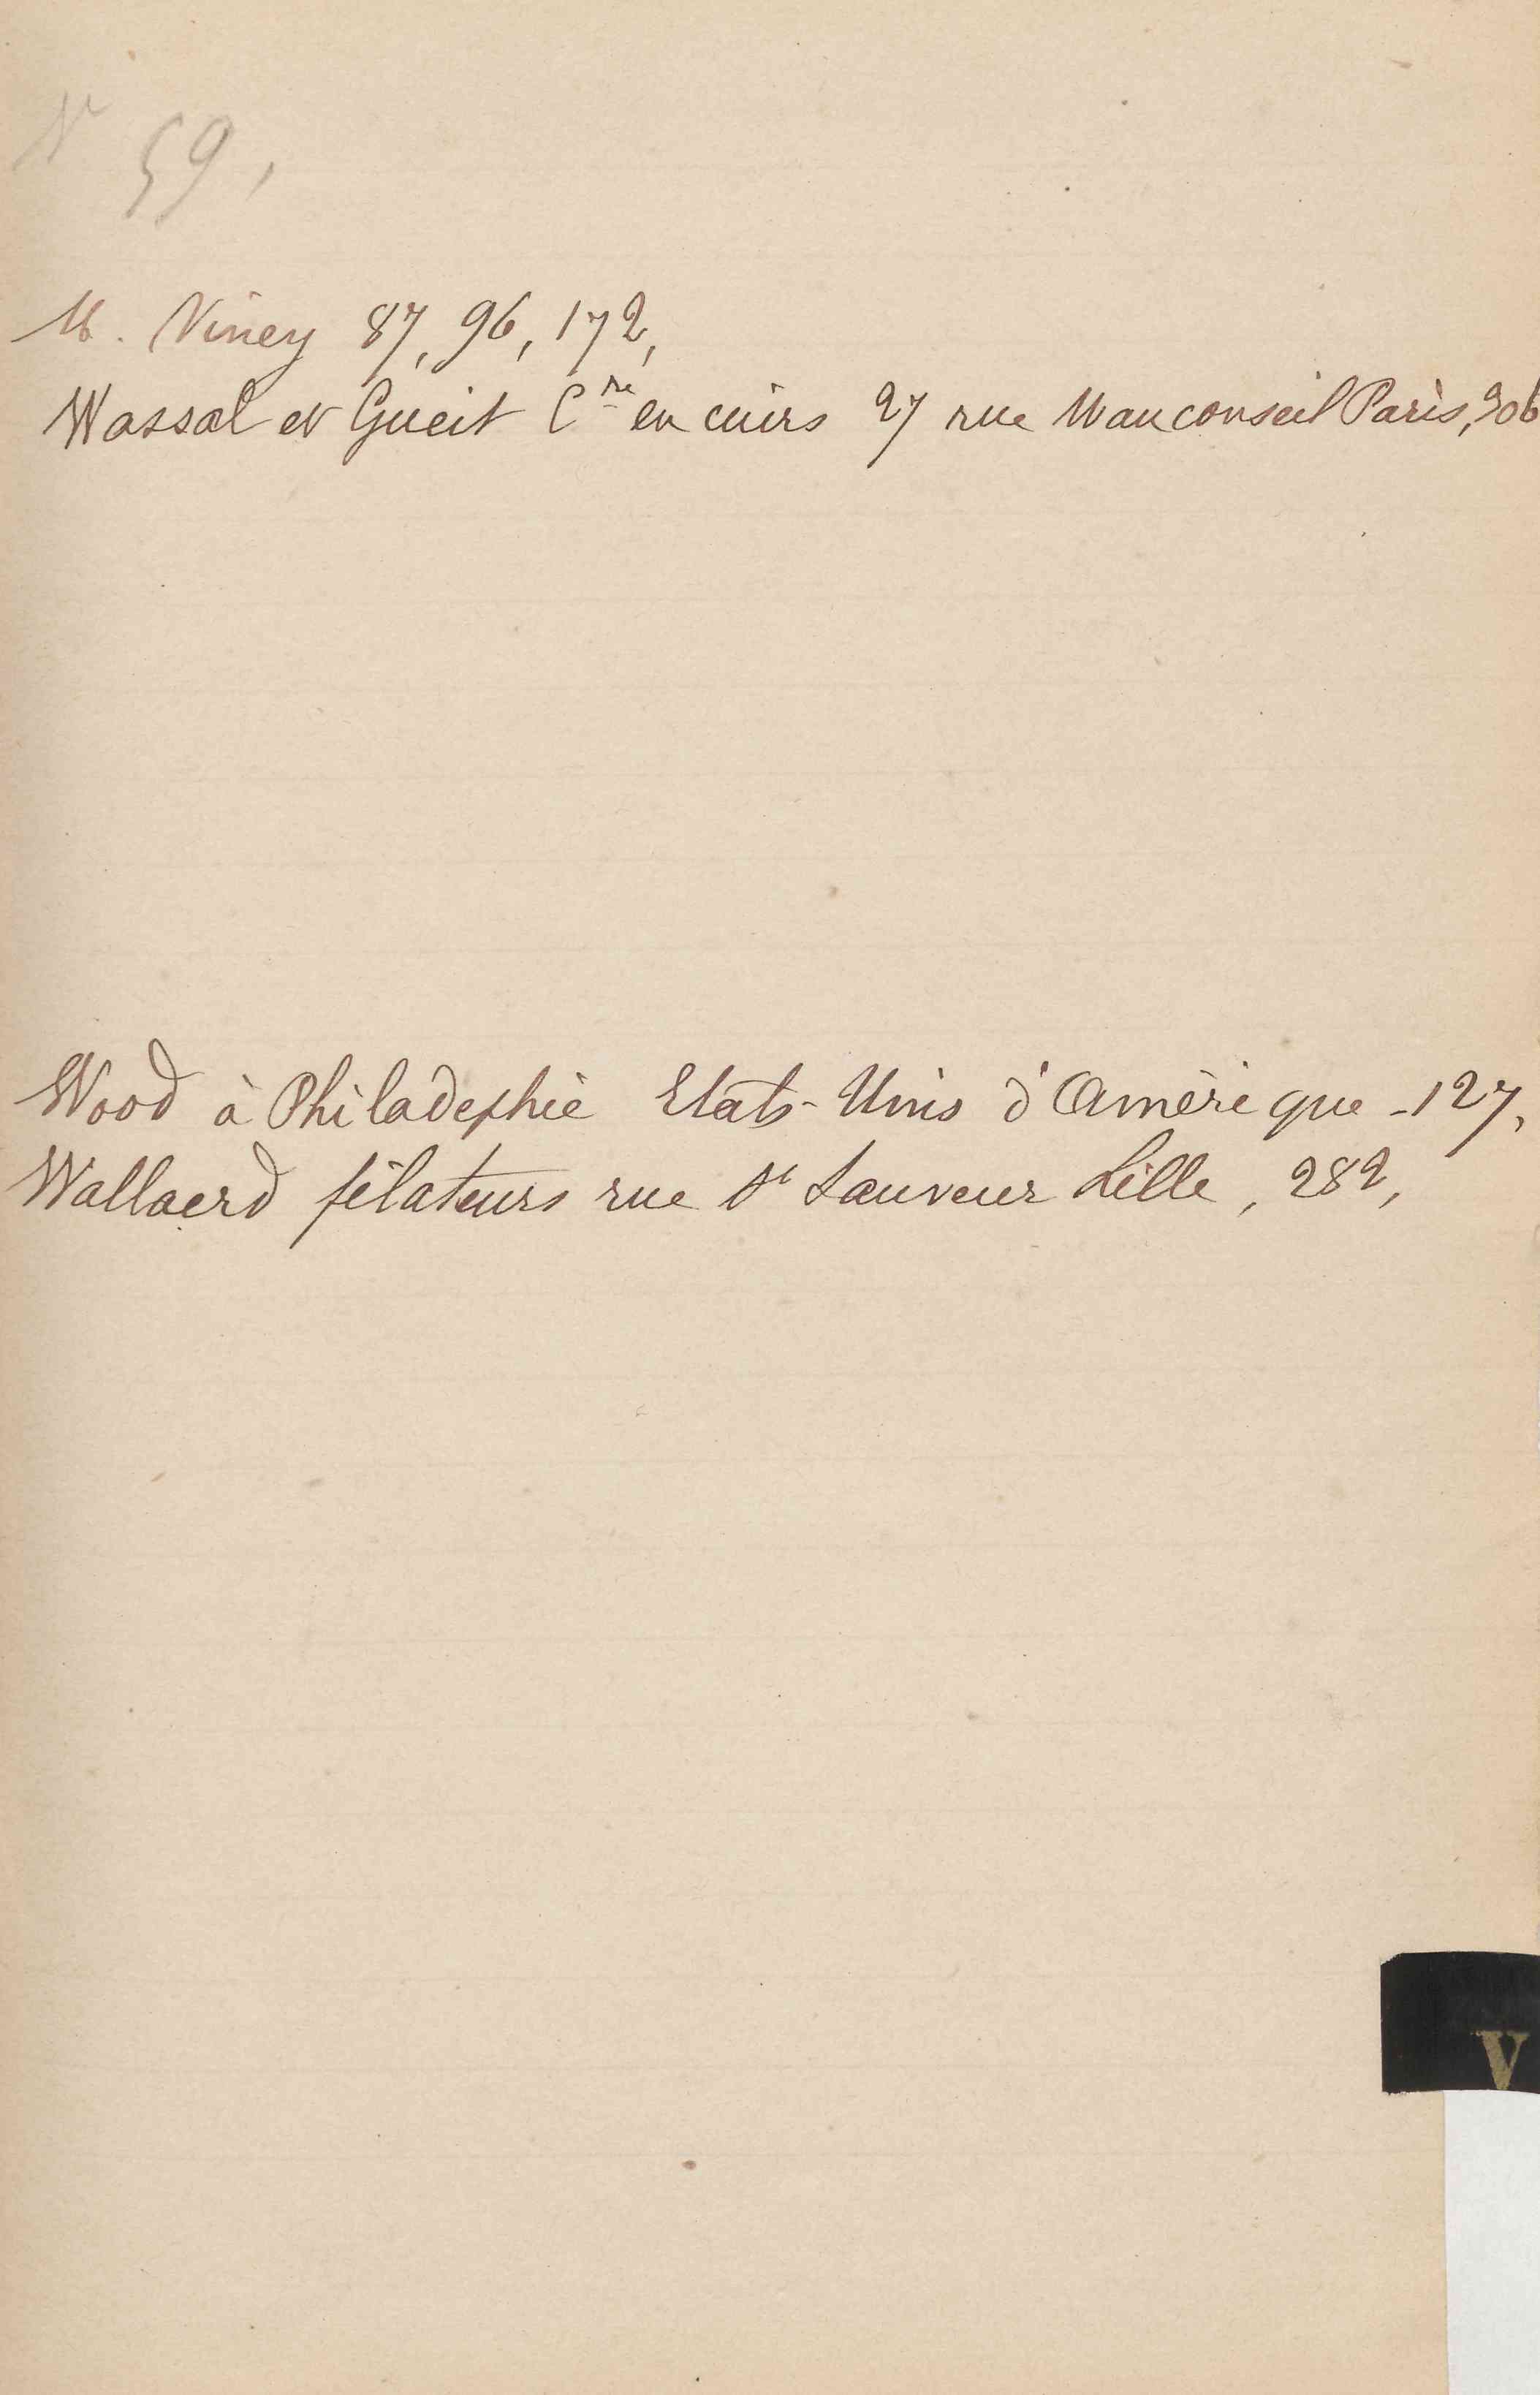 N 59,
M. Viney 87, 96, 172,
Wassal et Gueit Cre en cuirs 27 rue Mauconseil Paris, 306
Wood à Philadephie Etats-Unis d'Amérique - 127,
Wallaerd filateurs rue St Sauveur Lille, 282,
V